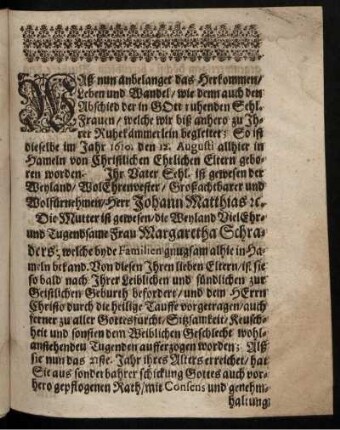 WAß nun anbelanget das Herkommen/
Leben und Wandel/ wie denn auch den
Abschied der in GOtt ruhenden Sehl.
Frauen/ welche wir biß anhero zu Ih-
rer Ruhekämmerlein begleitet; So ist
dieselbe im Jahr den 12. Augusti allhier in
Hameln von Christlichen Ehrlichen Eltern gebo-
ren worden. Ihr Vater Sehl. ist gewesen der
Weyland/ WolEhrenvester/ Großachtbarer und
Wolfürnehmen/ Herr Johann Matthias ꝛc.
Die Mutter ist gewesen/ die Weyland VielEhr-
und Tugendsame Frau Margaretha Schra-
ders; welche byde Familien gnugsam alhie in Ha-
meln bekand. Von diesen Ihren lieben Eltern/ ist sie
so bald nach Ihrer Leiblichen und sündlichen zur
Geistlichen Geburth befordert/ und dem HErrn
Christo durch die heilige Tauffe vorgetragen/ auch
ferner zu aller Gottesfurcht/ Sitsamkeit/ Keusch-
heit und sonsten dem Weiblichen Geschlecht wohl-
anstehenden Tugenden aufferzogen worden; Alß
sie nun das 21ste. Jahr ihres Alters erreichet/ hat
Sie aus sonderbahrer schickung Gottes auch vor-
hero gepflogenen Rath/ mit Consens und genehm-
haltung